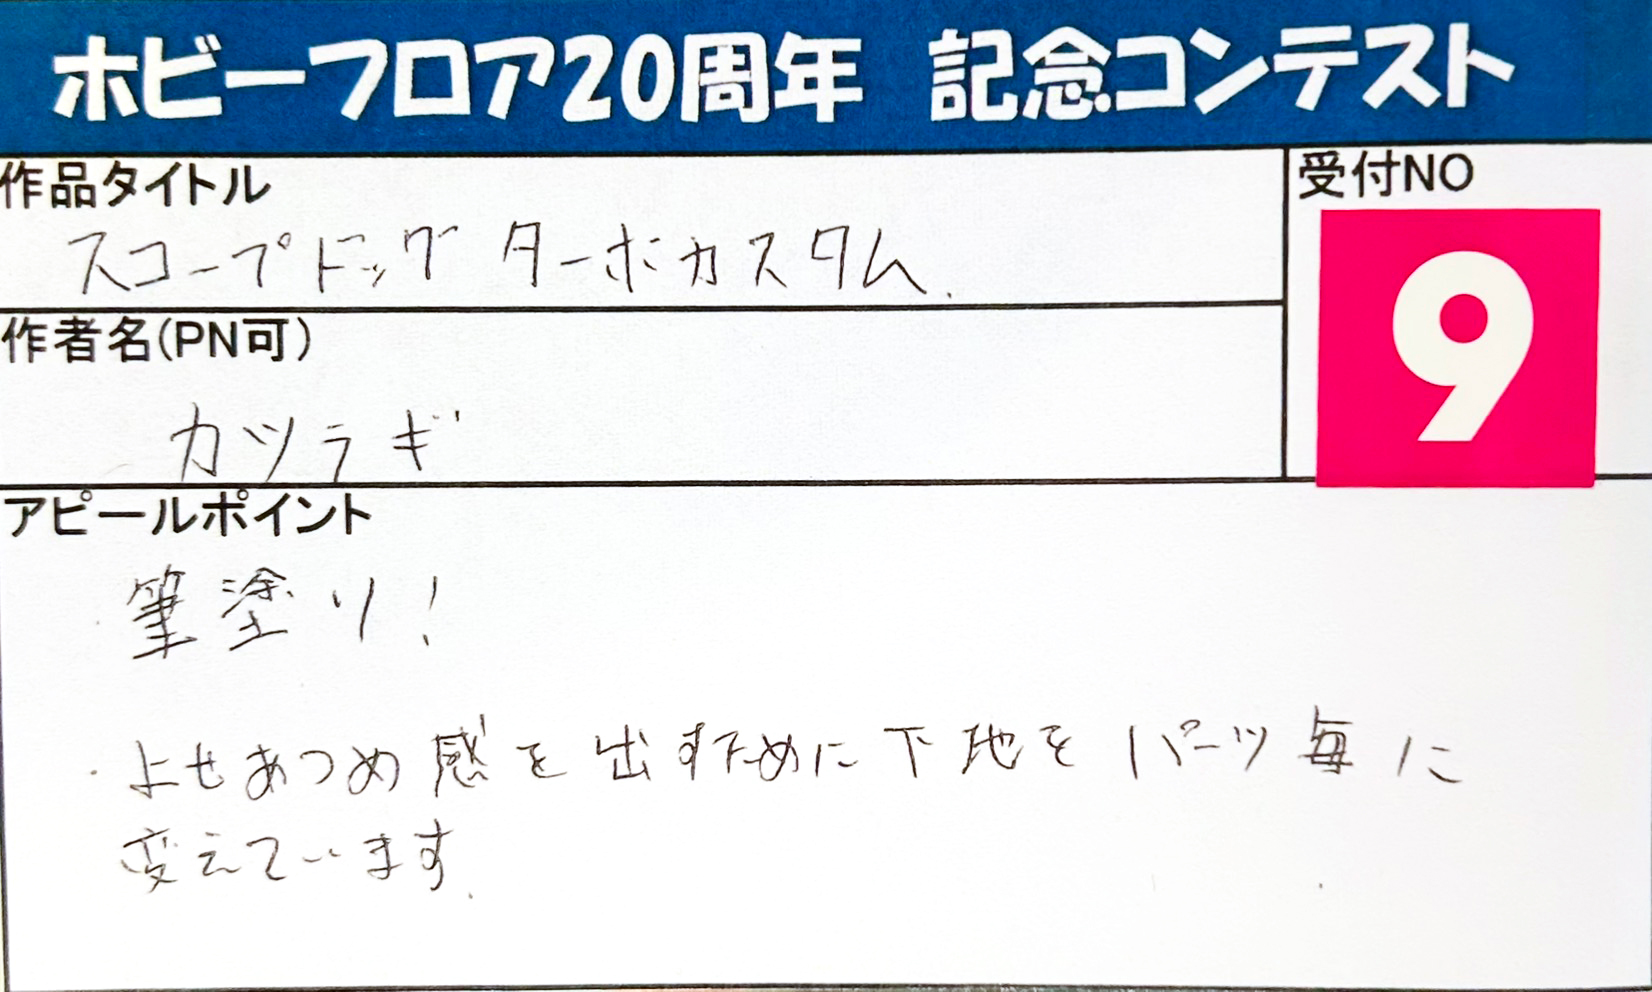 ホビーフロア20周年 記念コンテスト
作品タイトル
スコープドッグ ターボカスタム.
受付NO
9
作者名(PN可)
カツラギ
アピールポイント
・筆塗り!
・よせあつめ感を出すために下地をパーツ毎に
変えています.